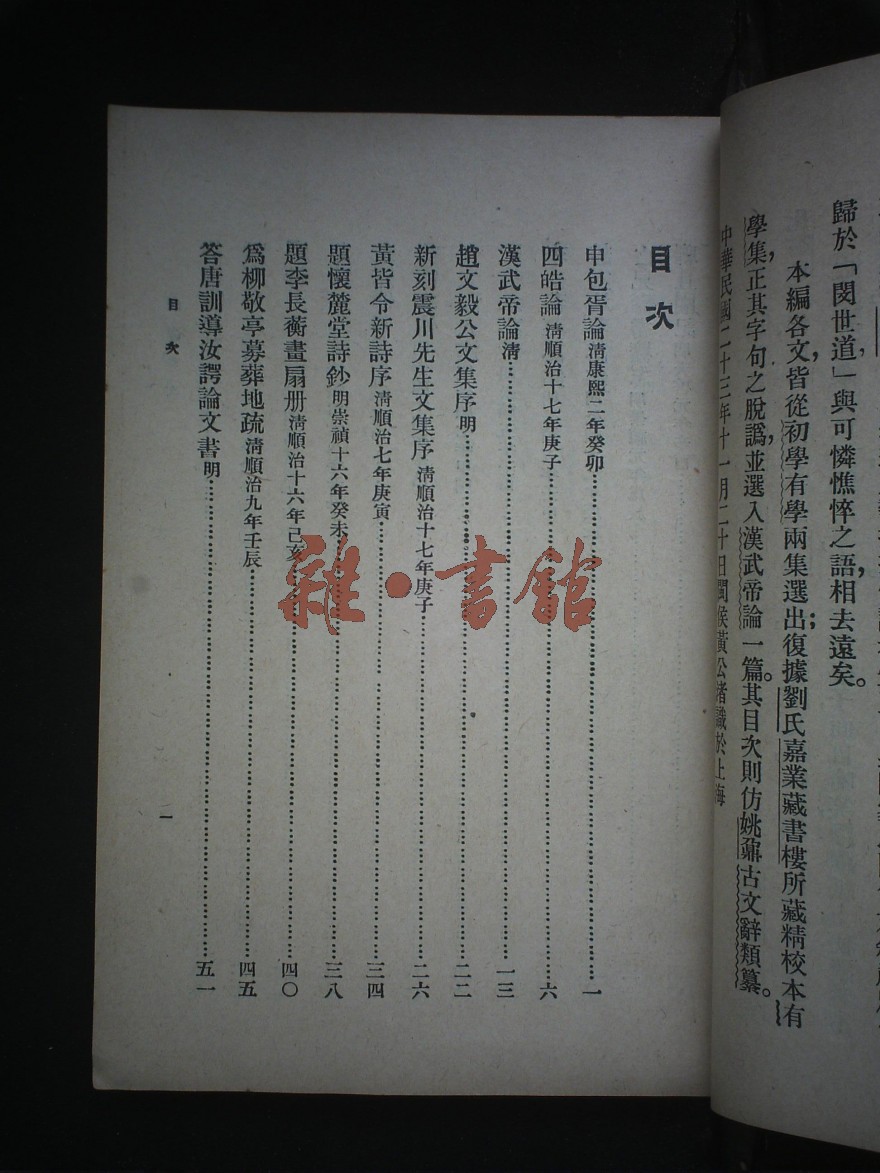 歸於「閔世道」與可憐憔悴之語，相去遠矣。
本編各文，皆從初學有學兩集選出；復據劉氏嘉業藏書樓所藏精校本有
學集，正其字句之脫譌，並選入漢武帝論一篇。其目次則仿姚鼐古文辭類纂。
中華民國二十三年十一月二十日閩侯黃公渚識於上海
目次
申包胥論清康熙二年癸卯……一
四皓論清順治十七年庚子……六
漢武帝論清……一三
趙文毅公文集序明……二二
新刻震川先生文集序清順治十七年庚子……二六
黃皆令新詩序清順治七年庚寅……三四
題懷麓堂詩鈔明崇禎十六年癸未……三八
題李長蘅畫扇册清順治十六年己亥……四〇
爲柳敬亭募葬地疏清順治九年壬辰……四五
答唐訓導汝諤論文書明……五一
目次
一
雜·書館